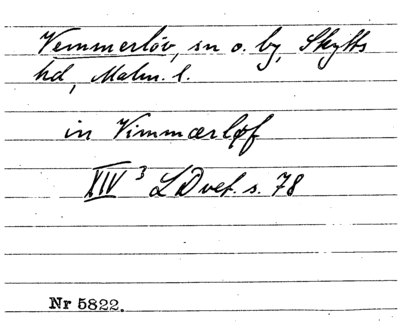 Vemmerlöv, sn o. by, Skytts
hd, Malm. l.
in Vimmærløf
XIV³ LDvef. s. 78
Nr 5822.